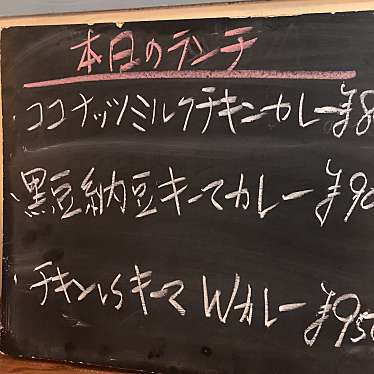 本日のランチ
・ココナッツミルクチキンカレー ¥8
・黒豆納豆キーマカレー ¥90
・チキンLSキーマ Wカレー ¥950